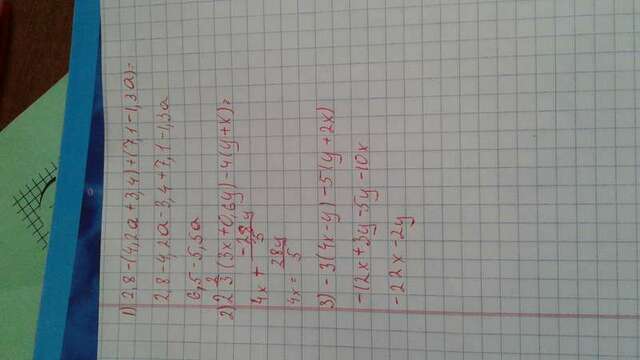 1) 2,8-(4,2a+3,4)+(7,1-1,3a)=
2,8-4,2a-3,4+7,1-1,3a
6,5-5,5a
2) 2 2/3 (3x+0,6y)-4(y+x)=
4x + -28y/5
4x = 28y/5
3) -3(4x-y)-5(y+2x)
-12x+3y-5y-10x
-22x-2y